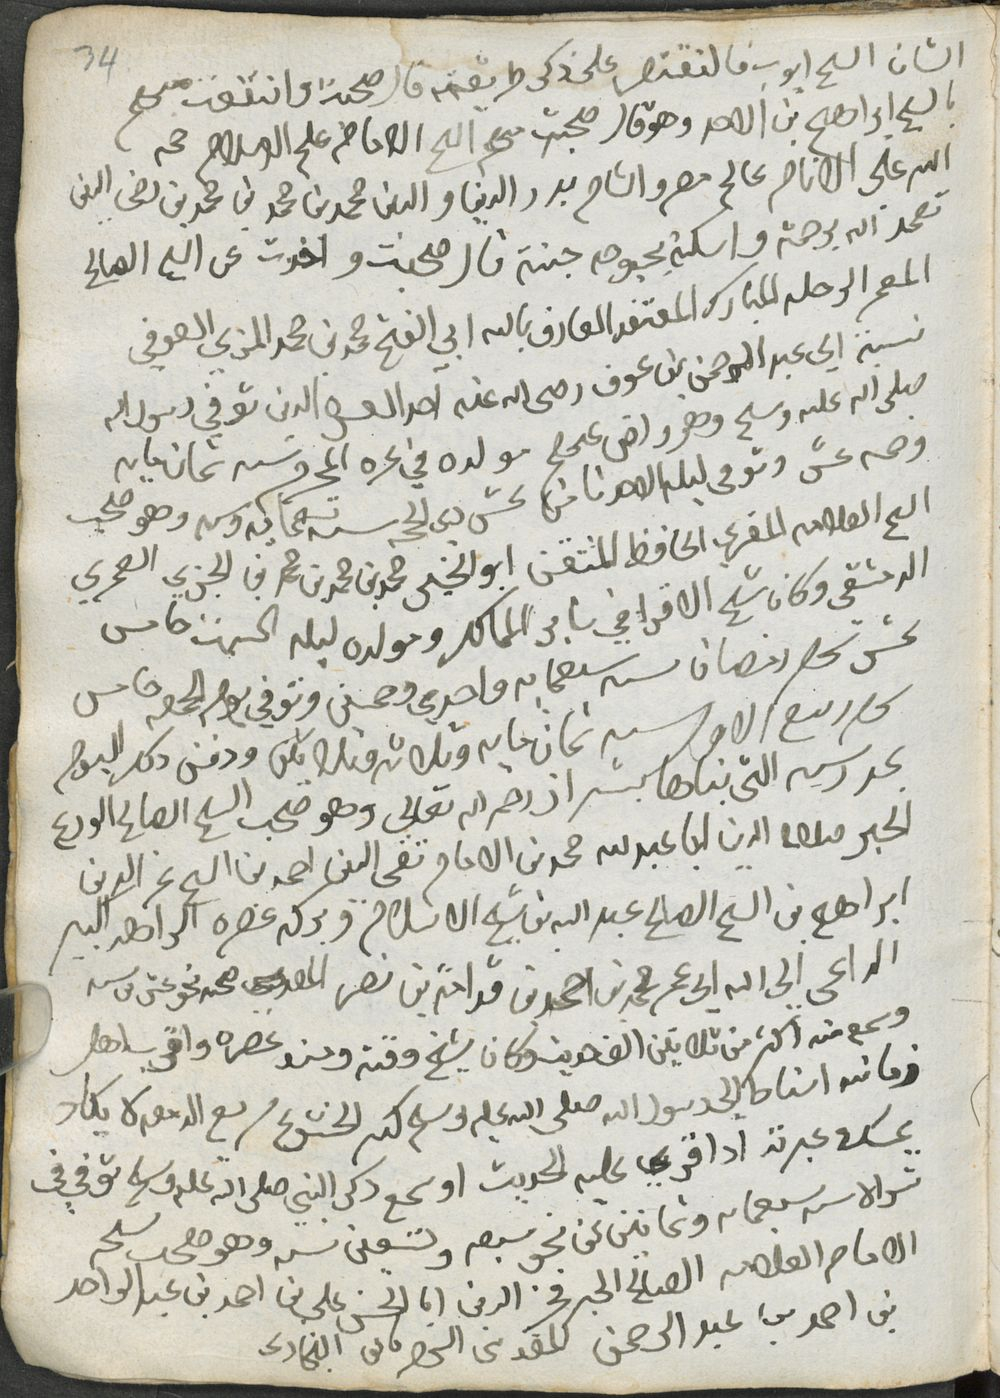 34
الشان الشيخ ايوب فالنقتصر على ذكر طريقته قال صحبت وانتفعت
بالشيخ ابراهيم بن الاحد وهو قال صحبت الشيخ الامام علم الاسلام حجه
الله على الانام عالم مصر والشام بدر الدنيا والدين محمد بن محمد بن محمد بن رضي الدين
تغمد الله برحمته واسكنه بحبوحه جنته قال صحبت واخذت عن الشيخ الصالح
المعمر الرحله المبارك المعتقد العارف بالله ابي الفتح محمد بن محمد المزي الصوفي
نسبة الى عبد الرحمن بن عوف رضى الله عنه احد العشره الذين توفي رسول الله
صلى الله عليه وسلم وهو راض عنهم مولده في غره المحرم سنه ثمان مايه
وخمسه عشر وتوفي ليله الاحد ثامن عشر ذي الحجه سنه تسعمايه وسته وهو صحب
الشيخ العلامه المقري الحافظ المتقن ابو الخير محمد بن محمد بن محمد بن الجزري العمري
الدمشقي وكان شيخ الاقرا في ساير الممالك ومولده ليله السبت خامس
عشر شهر رمضان سنه سبعمايه واحدى وخمسين وتوفي يوم الجمعه خامس
شهر ربيع الاول سنه ثمان مايه وثلاثه وثلاثين ودفن ذلك اليوم
بمدرسته التى بناها بشيراز رحمه الله تعالى وهو صحب الشيخ الصالح الورع
الخير صلاح الدين ابا عبد الله محمد بن الامام تقي الدين احمد بن الشيخ عز الدين
ابراهيم بن الشيخ الصالح عبد الله بن شيخ الاسلام وبركه عصره الزاهد الكبير
الداعي الى الله ابي عمر محمد بن احمد بن قدامة بن نصر المقدسي صحبه نحو عشر سنه
وسمع منه اكثر من ثلاثين الف حديث وكان شيخ وقته ومسند عصره واقرب اهل
زمانه اسنادا الى رسول الله صلى الله عليه وسلم كثير الخشوع سريع الدمعه لا يكاد
يمسك عبرته اذا قرئ عليه الحديث او سمع ذكر النبي صلى الله عليه وسلم توفي في
شوال سنه سبعمايه وثمانين عن نحو سبعه وتسعين سنه وهو صحب شيخه
الامام العلامه الصالح الخير فخر الدين ابا الحسن علي بن احمد بن عبد الواحد
بن احمد بن عبد الرحمن المقدسي البخاري